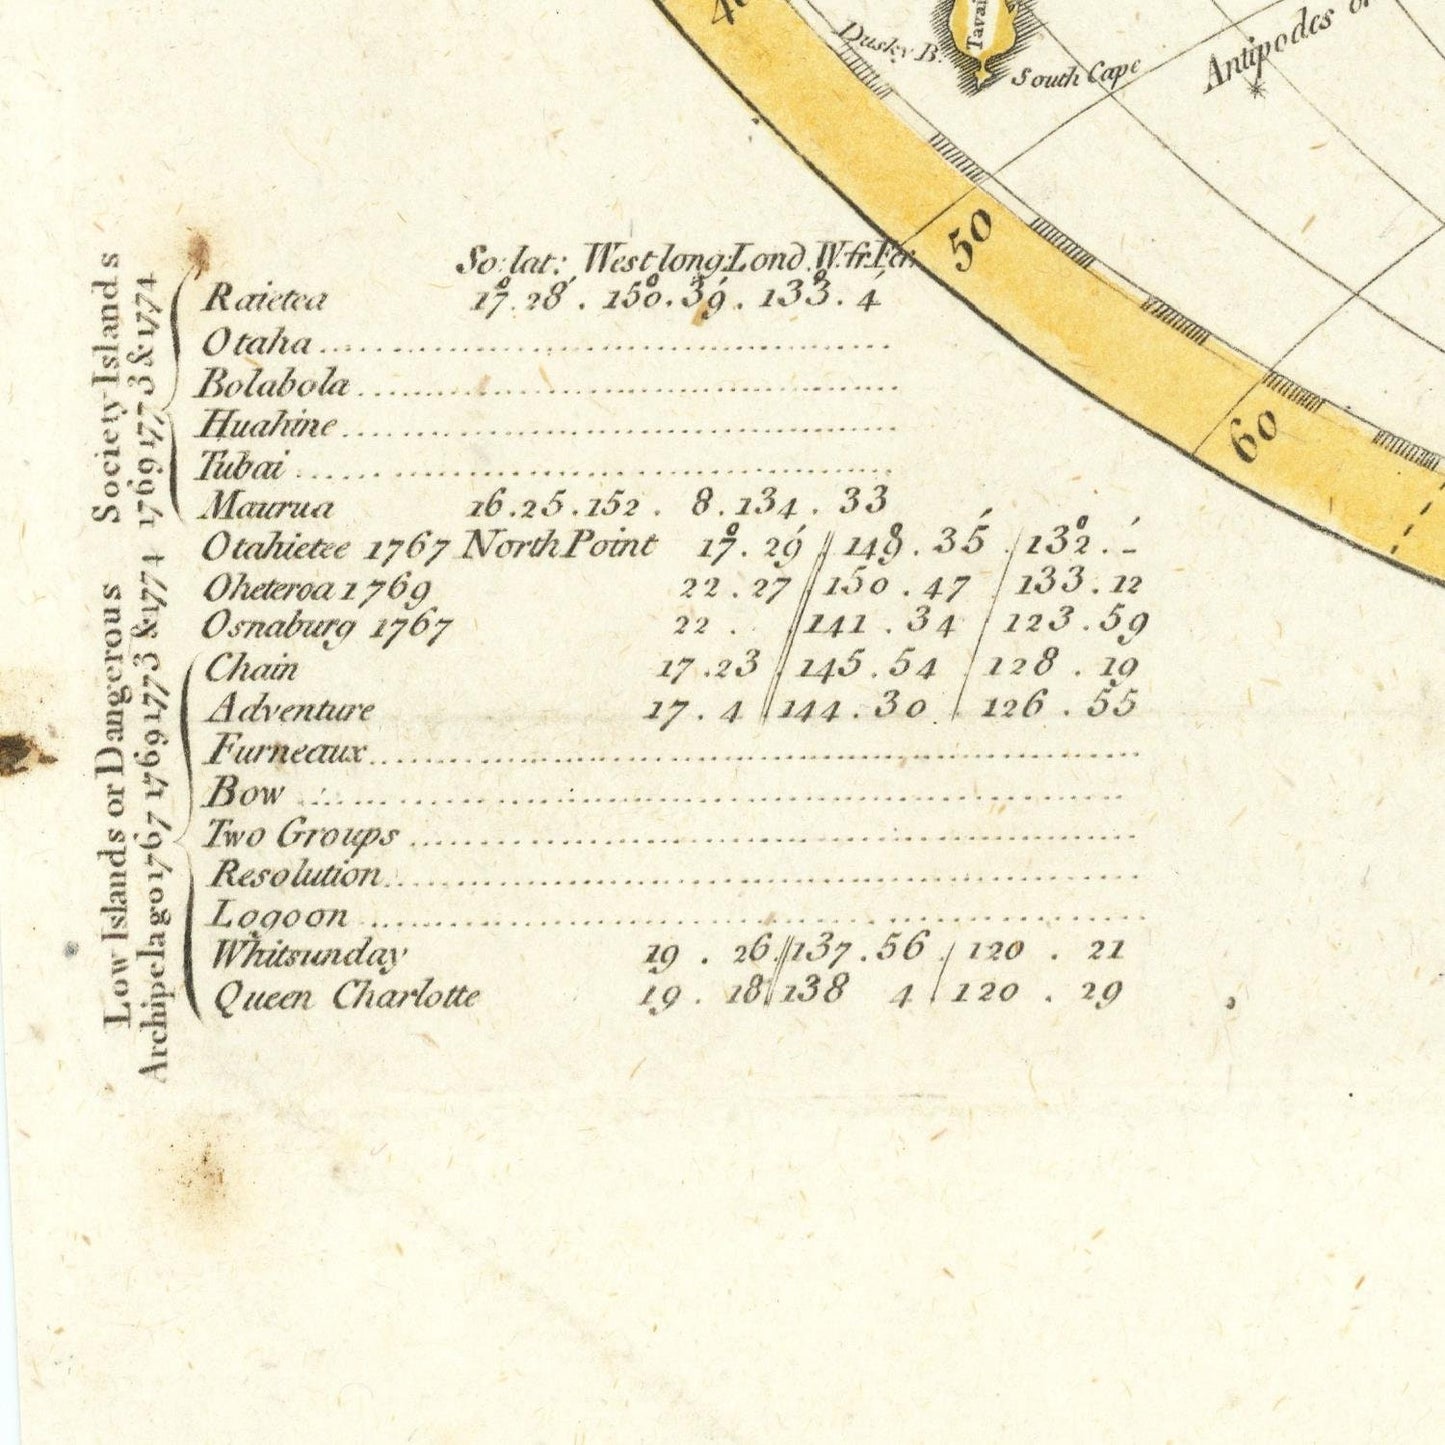 40
Dusky B.
Tavai
South Cape
Antipodes
50
60
So: lat: West long: Lond. W. fr. Fer.
Society Islands
1769 1773 & 1774
Raietea 17°.28′. 150°.39′. 133°.4′
Otaha
Bolabola
Huahine
Tubai
Maurua 16.25.152. 8.134.33
Otahietee 1767 North Point 17°.29′ 149°.35′. 132°.-′
Oheteroa 1769 22.27 150.47 133.12
Osnaburg 1767 22. 141.34 123.59
Low Islands or Dangerous
Archipelago 1767 1769 1773 & 1774
Chain 17.23 145.54 128.19
Adventure 17.4 144.30. 126.55
Furneaux
Bow
Two Groups
Resolution
Logoon
Whitsunday 19.26. 137.56. 120.21
Queen Charlotte 19.18 138 4. 120.29